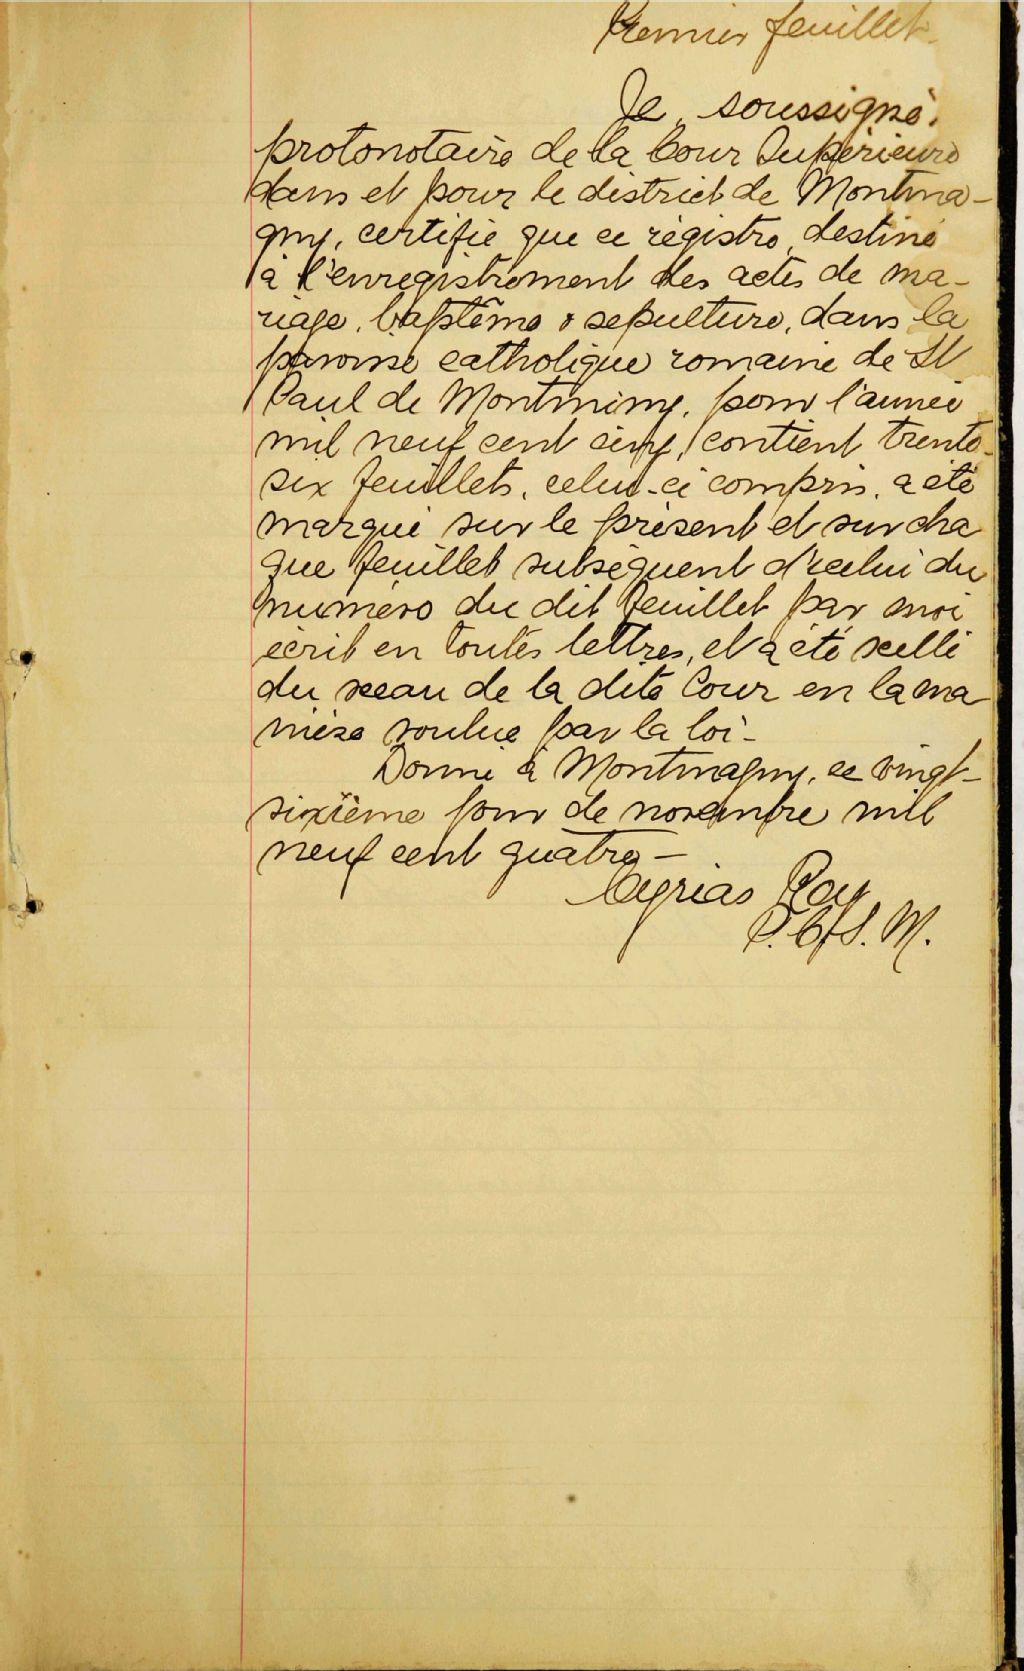 Premier feuillet
Je, soussigné,
protonotaire de la Cour Supérieure
dans et pour le district de Montma-
gny, certifie que ce régistre, destiné
à l'enregistrement des actes de ma-
riage, baptême & sepulture, dans la
paroisse catholique romaine de St
Paul de Montminy, pour l'année
mil neuf cent cinq, contient trente-
six feuillets, celui-ci compris, a été
marqué sur le présent et sur cha
que feuillet subséquent d'icelui du
numéro du dit feuillet par moi
écrit en toutes lettres, et a été scellé
du sceau de la dite Cour en la ma
nière voulue par la loi-
Donné à Montmagny, ce vingt-
sixième jour de novembre mil
neuf cent quatre-
Cyrias Roy
P.C.S.M.